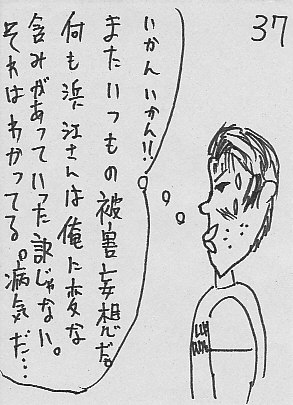 37
いかんいかん!!
またいつもの被害妄想だ。
何も浜江さんは俺に変な
含みがあっていった訳じゃない。
それはわかってる。病気だ…